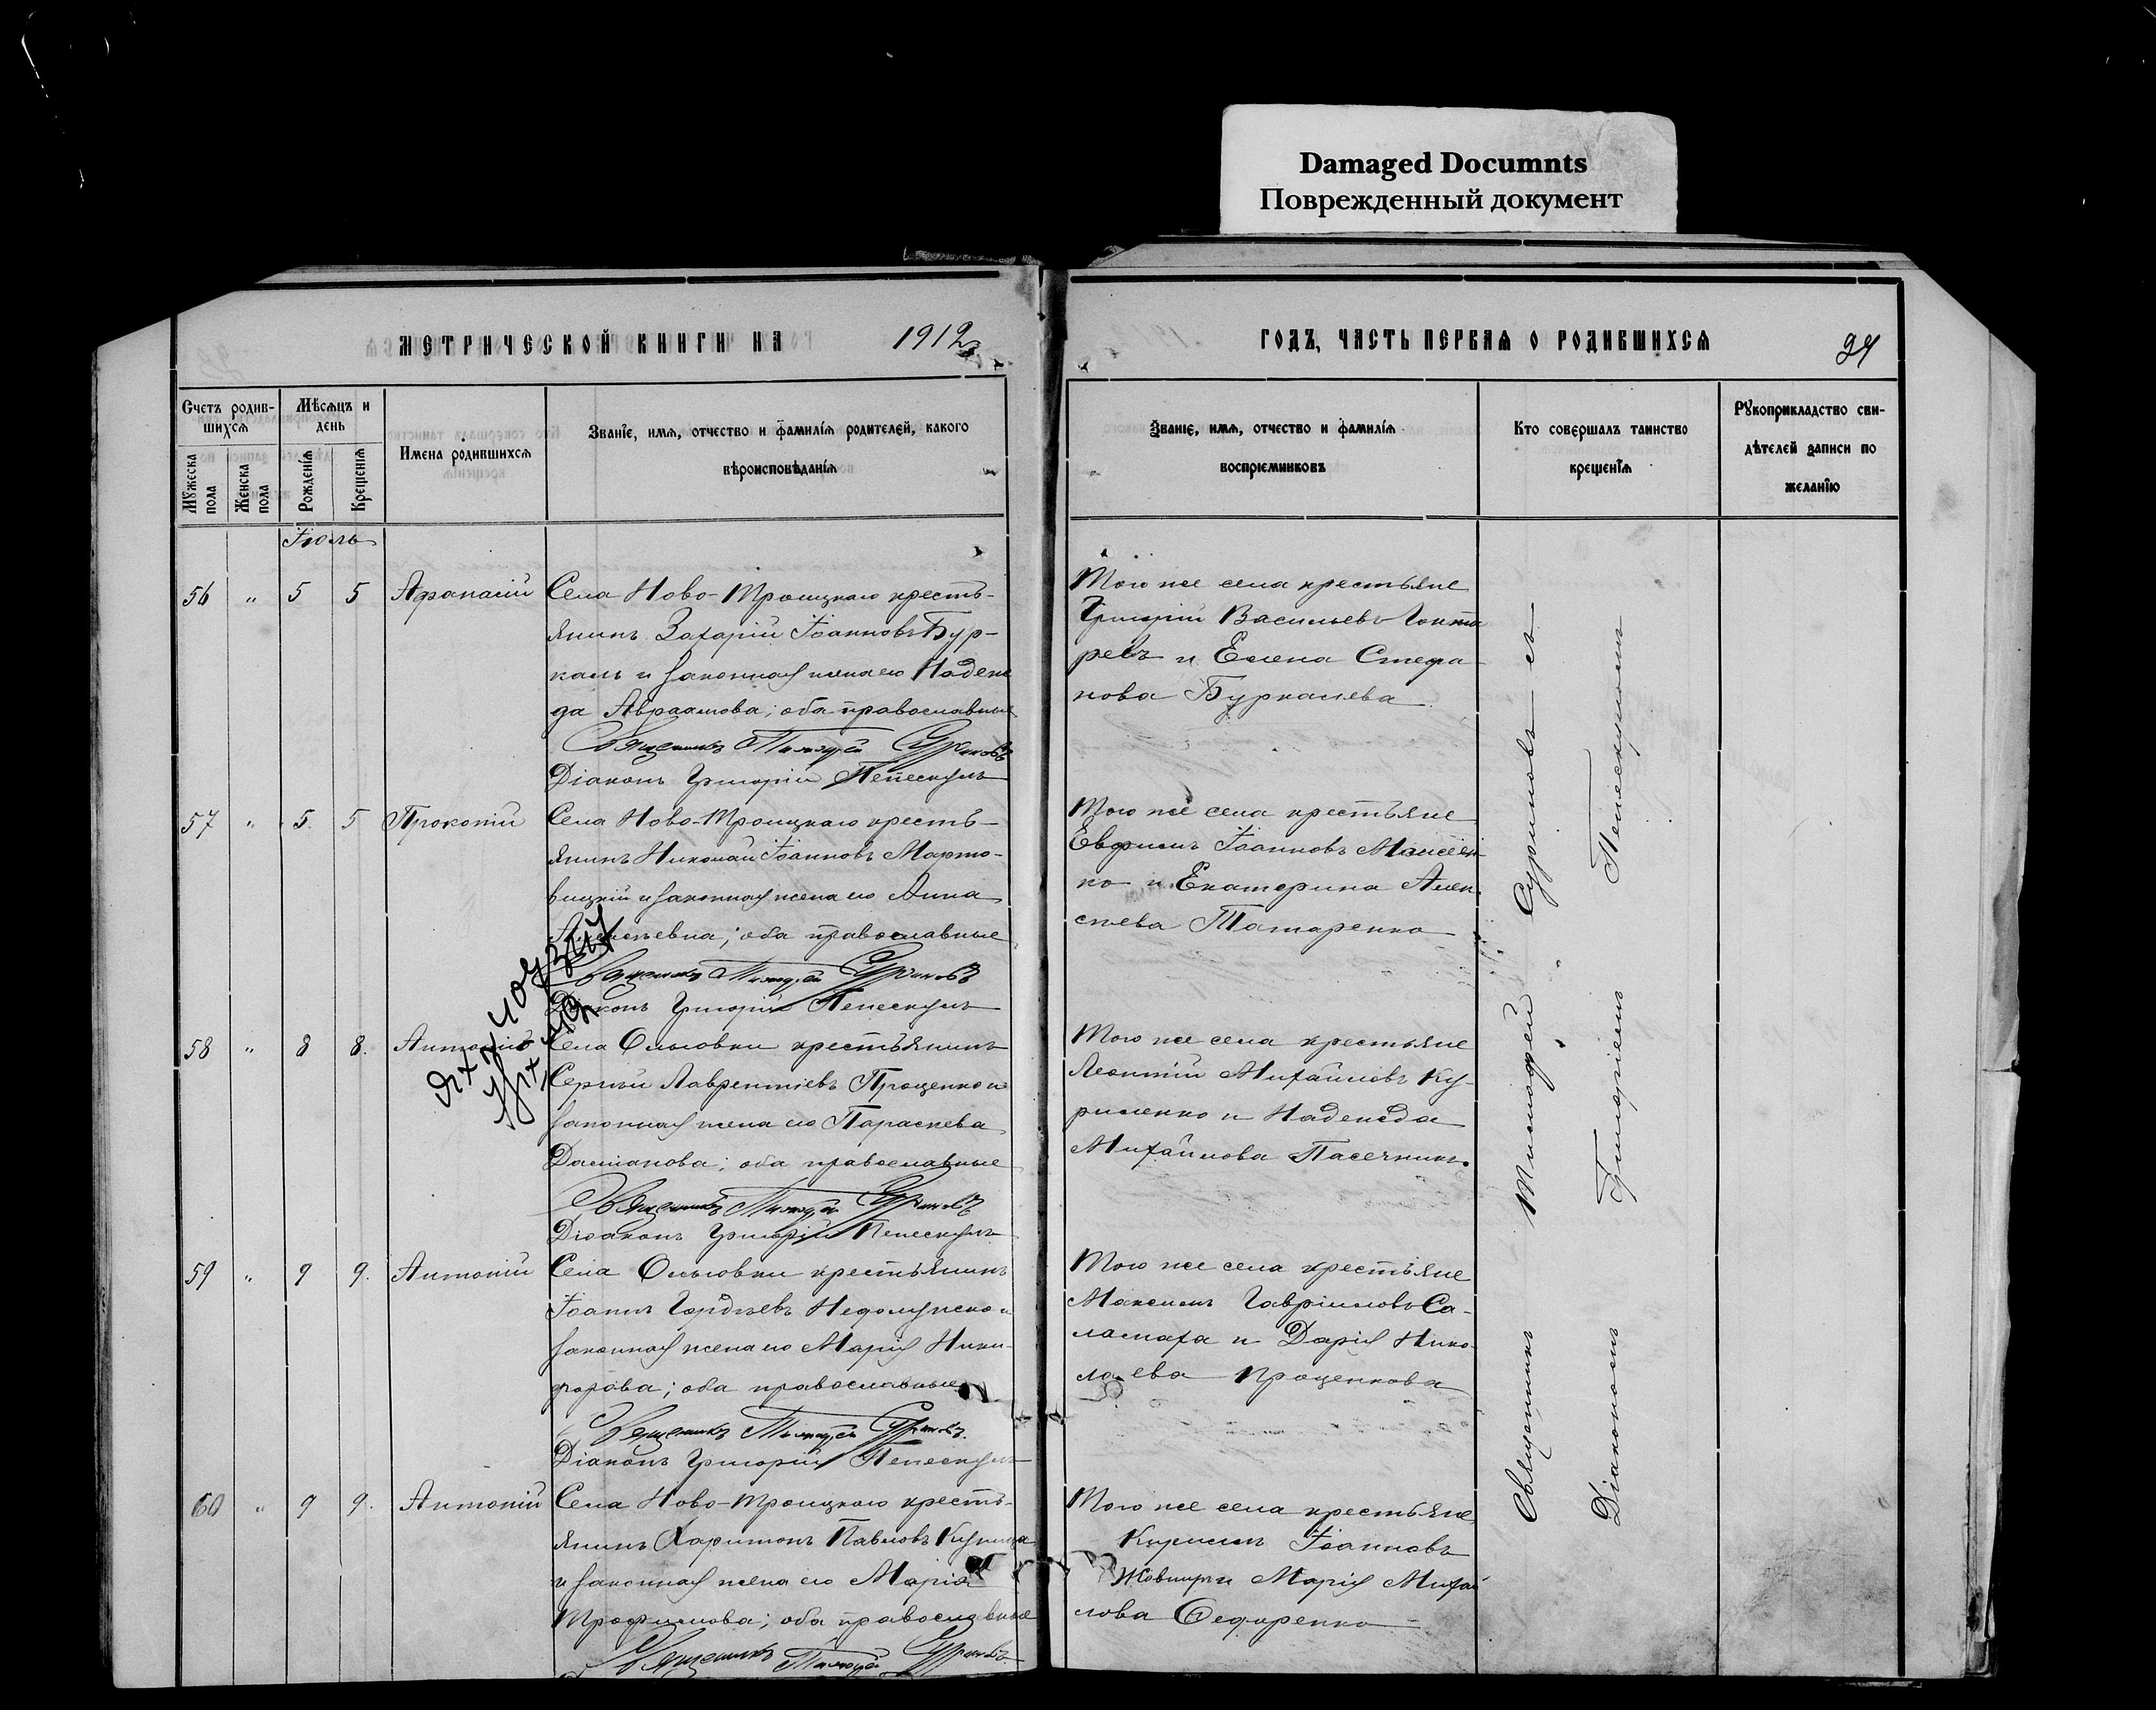 Damaged Documnts
Поврежденный документ
МЕТРИЧЕСКОЙ КНИГИ НА 1912
ГОДЪ, ЧАСТЬ ПЕРВАЯ О РОДИВШИХСЯ
Счетъ родив-
шихся
Мѣсяцъ и
день
Мужеска
пола
Женска
пола
Рожденія
Крещенія
Имена родившихся
Званіе, имя, отчество и фамилія родителей, какого
вѣроисповѣданія
Званіе, имя, отчество и фамилія
воспріемниковъ
Кто совершалъ таинство
крещенія
Рукоприкладство сви-
дѣтелей записи по
желанію
Іюль
56 " 5 5 Афанасій
Села Ново-Троицкаго кресть-
янинъ Захарій Іоанновъ Бур-
каль и законная жена его Надеж
да Авраамова; оба православные
Священникъ Тимофей Суриновъ
Діаконъ Григорій Пепескулъ
Того же села крестьяне
Григорій Васильевъ
ревъ и Елена Стефа-
нова Буркалева
57 " 5 5 Прокопій
Села Ново-Троицкаго кресть-
янинъ Николай Іоанновъ Марто-
вицкій и законная жена его Анна
оба православные
Священникъ Тимофей Суриновъ
Діаконъ Григорій Пепескулъ
Того же села крестьяне
Евфимъ Іоанновъ Моисеен-
ко и Екатерина Алек-
сѣева Татаренко
58 " 8 8. Антоній
Села Ольговки крестьянинъ
Сергій Лаврентіевъ Проценко и
законная жена его Параскева
Даміанова; оба православные
Священникъ Тимофей Суриновъ
Діаконъ Григорій Пепескулъ
Того же села крестьяне
Леонтій Михайловъ Ку-
риленко и Надежда
Михайлова Пасечникъ.
59 " 9 9. Антоній
Села Ольговки крестьянинъ
Іоаннъ Гордѣевъ и
законная жена его Марія Ники-
форова; оба православные
Священникъ Тимофей Суриновъ.
Діаконъ Григорій Пепескулъ
Того же села крестьяне
Максимъ Гавріиловъ Са-
ламаха и Дарія Нико-
лаева Проценкова
60 " 9 9. Антоній
Села Ново-Троицкаго кресть-
янинъ Харитонъ Павловъ
и законная жена его Марія
Трофимова; оба православные
Священникъ Тимофей Суриновъ
Того же села крестьяне
Кириллъ Іоанновъ
и Марія Михай
лова Федоренко
Священникъ Тимофей Суриновъ съ
Діакономъ Григоріемъ Пепескуломъ